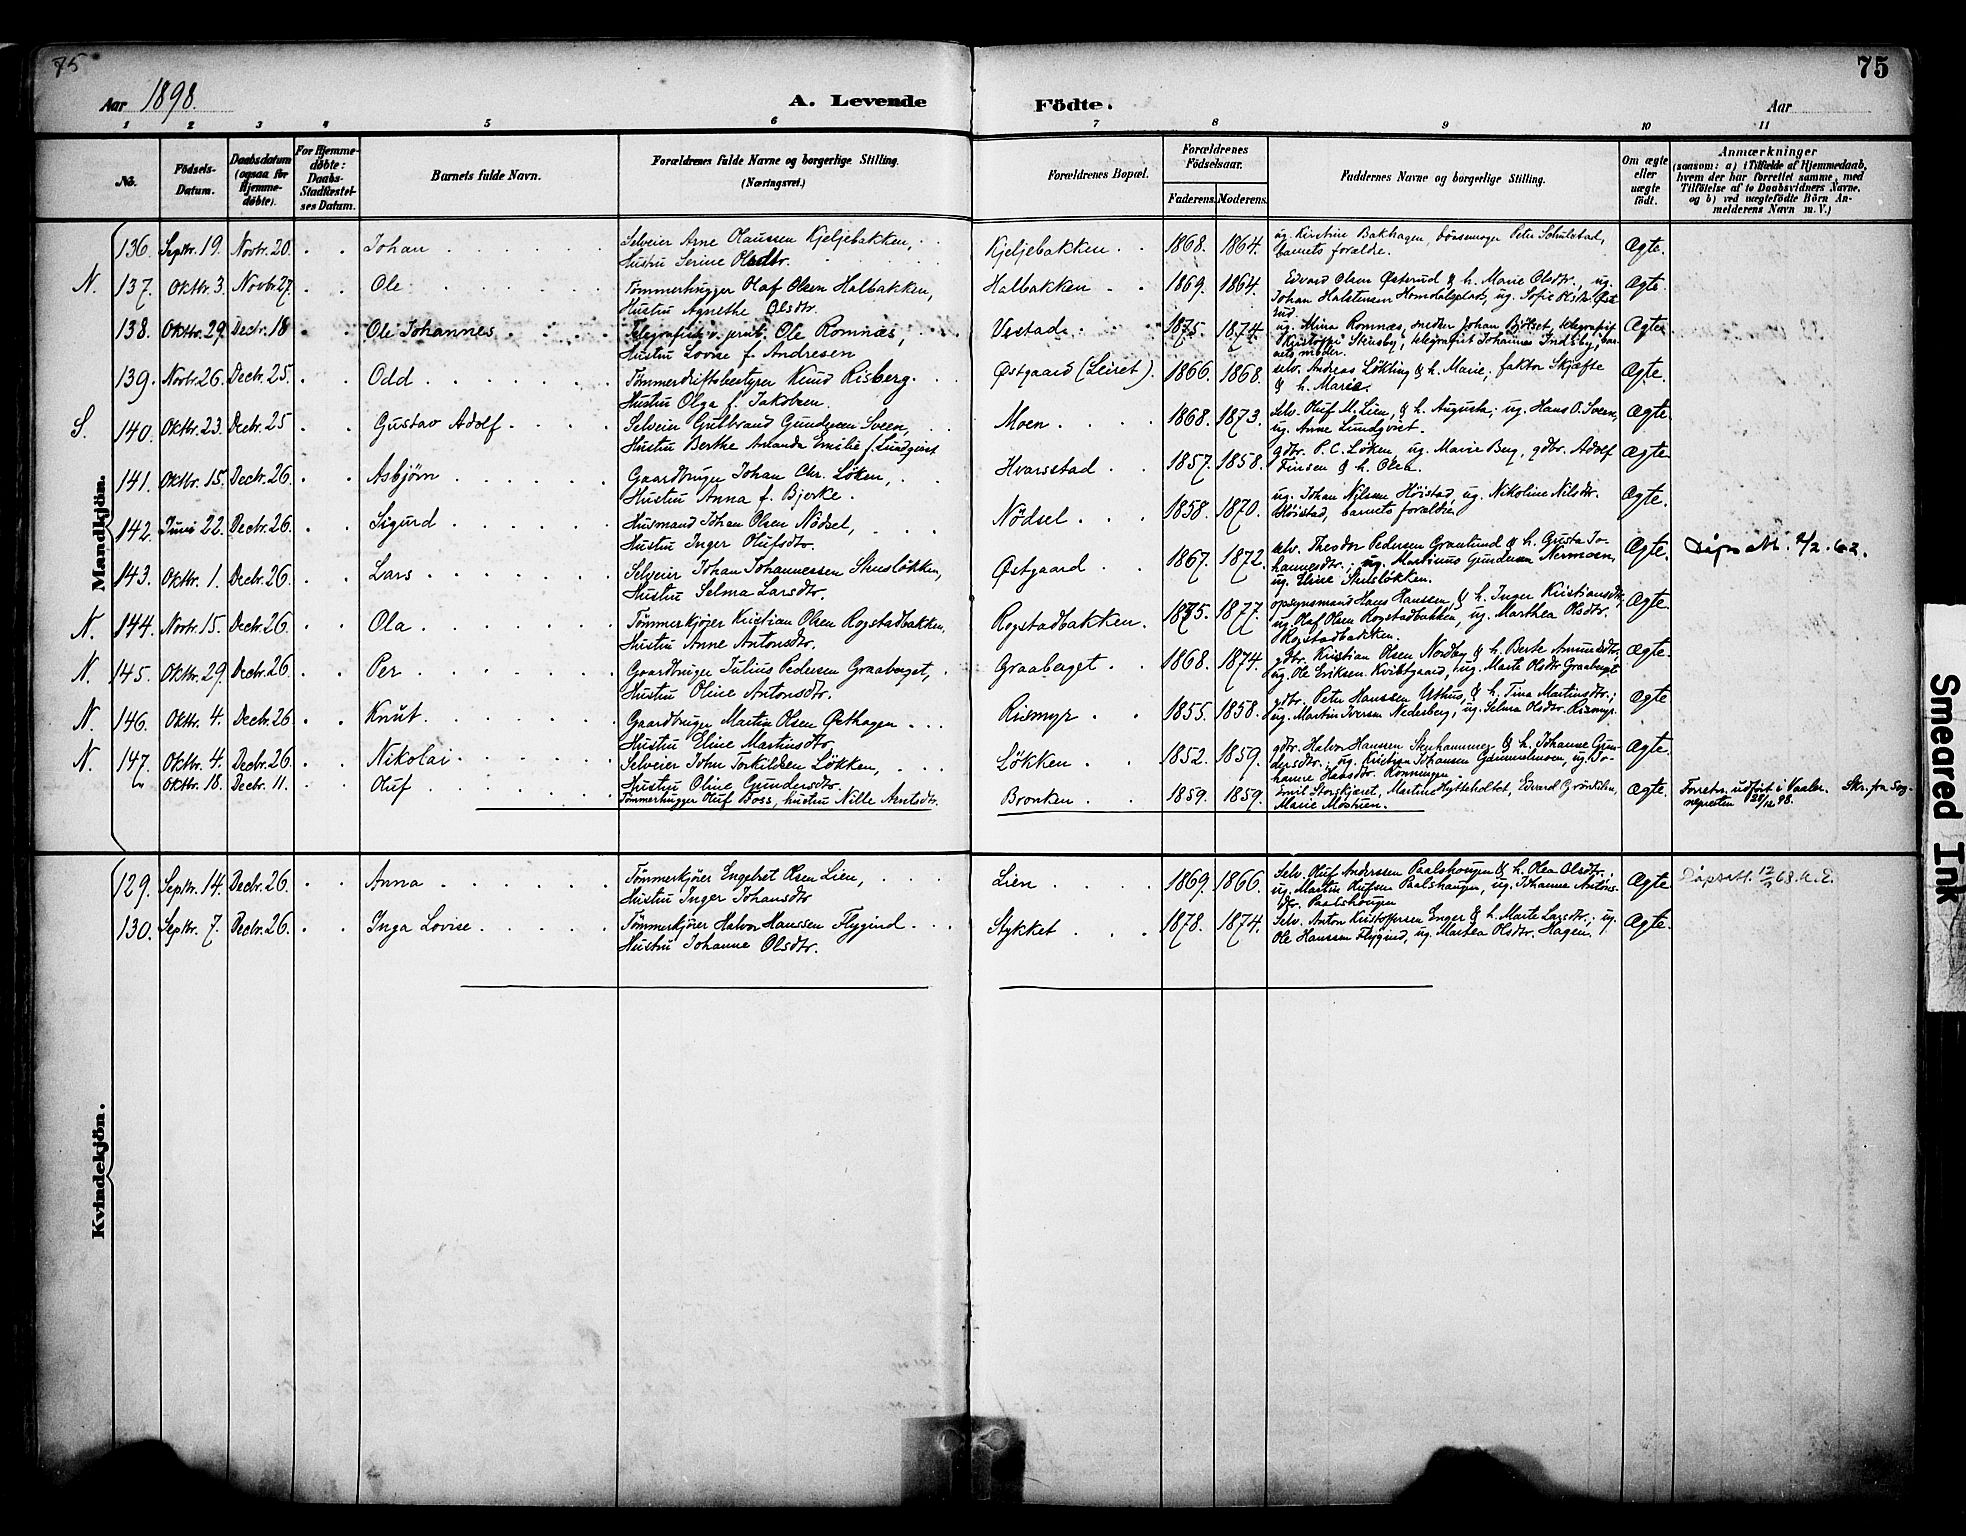 75
75
Aar 1898.
A. Levende Födte.
Aar
1 2 3 4 5 6 7 8 9 10 11
No.
Födsels-Datum.
Daabsdatum (ogsaa for Hjemme-døbte).
For Hjemme-døbte: Daabs-Stadfæstel-ses Datum.
Barnets fulde Navn.
Forældrenes fulde Navne og borgerlige Stilling. (Næringsvei.)
Forældrenes Bopæl.
Forældrenes Födselsaar.
Faderens. Moderens.
Faddernes Navne og borgerlige Stilling.
Om ægte eller uægte födt.
Anmærkninger
(saasom: a) i Tilfælde af Hjemmedaab, hvem der har forrettet samme, med Tilföielse af to Daabsvidners Navne, og b) ved uægtefödte Börn An-melderens Navn m. V.)
Mandkjön.
136. Septr. 19. Novbr. 20. Johan Selveier Arne Olaussen Kjeljebakken, Kjeljebakken 1868. 1864. ug. Kirstine Bakhagen, Peter Schulstad, Ægte.
Hustru Serine Olsdtr. barnets forældre.
N. 137. Oktbr. 3. Novbr. 27. Ole Tømmerhugger Olaf Olsen Halbakken, Halbakken 1869. 1864. Edvard Olsen Østerud & h. Marie Olsdtr., ug. Ægte.
Hustru Agnethe Olsdtr. Johan Halstensen Homdalsplads, ug. Sofie
138. Oktbr. 29. Decbr. 18 Ole Johannes Telegrafist Ole Romnæs, Vestad 1875. 1874. ug. Mina Romnæs, snedker Johan telegrafist Ægte.
Hustru Lovise f. Andresen telegrafist Johannes barnets moder.
139. Novbr. 26. Decbr. 25. Odd Tømmerdriftsbestyrer Knud Risberg. Østgaard (Leiret). 1866. 1868. selv. Andreas Løkting & h. Marie; faktor Skjæfte Ægte.
Hustru Olga f. Jakobsen. & h. Marie.
S. 140. Oktbr. 23. Decbr. 25 Gustav Adolf Selveier Gulbrand Gundersen Sveen, Moen 1868. 1873. Selv. Oluf M. Lien, & h. Augusta; ug. Hans O. Sveen, Ægte.
Hustru Berthe Amanda Emilie f. Lundqvist ug. Anne Lundqvist.
141. Oktbr. 15. Decbr. 26. Asbjörn Gaardbruger Johan Chr. Løken, Hvarstad 1857. 1858. gdbr. P. C. Løken, ug. Marie Berg, gdbr. Adolf Ægte
Hustru Anna f. Bjerke. Finsen & h. Olea.
142. Juni 22. Decbr. 26. Sigurd Husmand Johan Olsen Nödset, Nödset 1858. 1870. ug. Johan Nilsen Höistad, ug. Nikoline Nilsdtr. Ægte.
Hustru Inger Olufsdtr. Höistad, barnets forældre
143. Oktbr. 1. Decbr. 26. Lars Selveier Johan Johannessen Stensløkken, Østgaard 1867. 1872. selv. Theodor Pedersen Granlund & h. Gusta Jo- Ægte. Dåpsatt. 2/2. 62.
Hustru Selma Larsdtr. hannesdtr.; ug. Martinus Gundersen Nermoen, ug. Eline Stensløkken.
N. 144. Novbr. 15. Decbr. 26. Ola Tømmerkjører Kristian Olsen Rogstadbakken, Rogstadbakken. 1875. 1877. opsynsmand Hans Hanssen, & h. Inger Kristiansdtr. Ægte.
Hustru Anne Antonsdtr. ug. Olaf Olsen Rogstadbakken, ug. Marthea Olsdtr. Rogstadbakken.
N. 145. Oktbr. 29. Decbr. 26 Per Gaardbruger Julius Pedersen Graaberget, Graaberget. 1868. 1874. gdbr. Kristian Olsen Nordby & h. Berte Amundsdtr. Ægte.
Hustru Oline Antonsdtr. ug. Ole Eriksen Kvistgaard, ug. Marte Olsdtr. Graaberget
N. 146. Oktbr. 4. Decbr. 26 Knut. Gaardbruger Martin Olsen Østhagen Rismyr 1855. 1858. gdbr. Peter Hanssen Uthus, & h. Tina Martinsdtr.; Ægte
Hustru Eline Martinsdtr. ug. Martin Iversen Nederberg, ug. Selma Olsdtr. Rismyr.
N. 147. Oktbr. 4. Decbr. 26. Nikolai Selveier John Torkildsen Løkken, Løkken 1852. 1859. gdbr. Halvor Hanssen Skyhammer & h. Johanne Gun- Ægte.
Hustru Oline Gundersdtr. dersdtr.; ug. Kristian Johansen ug. Jo-hanne Hansdtr. Rønningen.
Oktbr. 18. Decbr. 11. Oluf Tømmerhugger Oluf Foss, hustru Nille Arntsdtr. Bronken 1859. 1859. Emil Storskjæret, Martin Hytteholtet, Edvard Grönholen, Ægte. Forretn. udført i Vaaler. Skr. fra Sog-
Marie Moshuen. nepresten 28/12 98.
Kvindekjön.
129. Septr. 14. Decbr. 26. Anna Tømmerkjører Engebret Olsen Lien, Lien 1869. 1866. Selv. Oluf Anderssen Paalshougen & h. Olea Olsdtr.; Ægte Dåpsatt. 12/1 63.
Hustru Inger Johansdtr ug. Martin Olufsen Paalshaugen, ug. Johanne Antons-dtr. Paalshougen
130. Septr. 7. Decbr. 26. Inga Lovise Tømmerkjører Halvor Hanssen Flygind Stykket 1878. 1874. Selv. Anton Kristoffersen Enger & h. Marte Larsdtr.; ug. Ægte.
Hustru Johanne Olsdtr. Ole Hanssen Flygind, ug. Martea Olsdtr. Hagen.
Smeared Ink